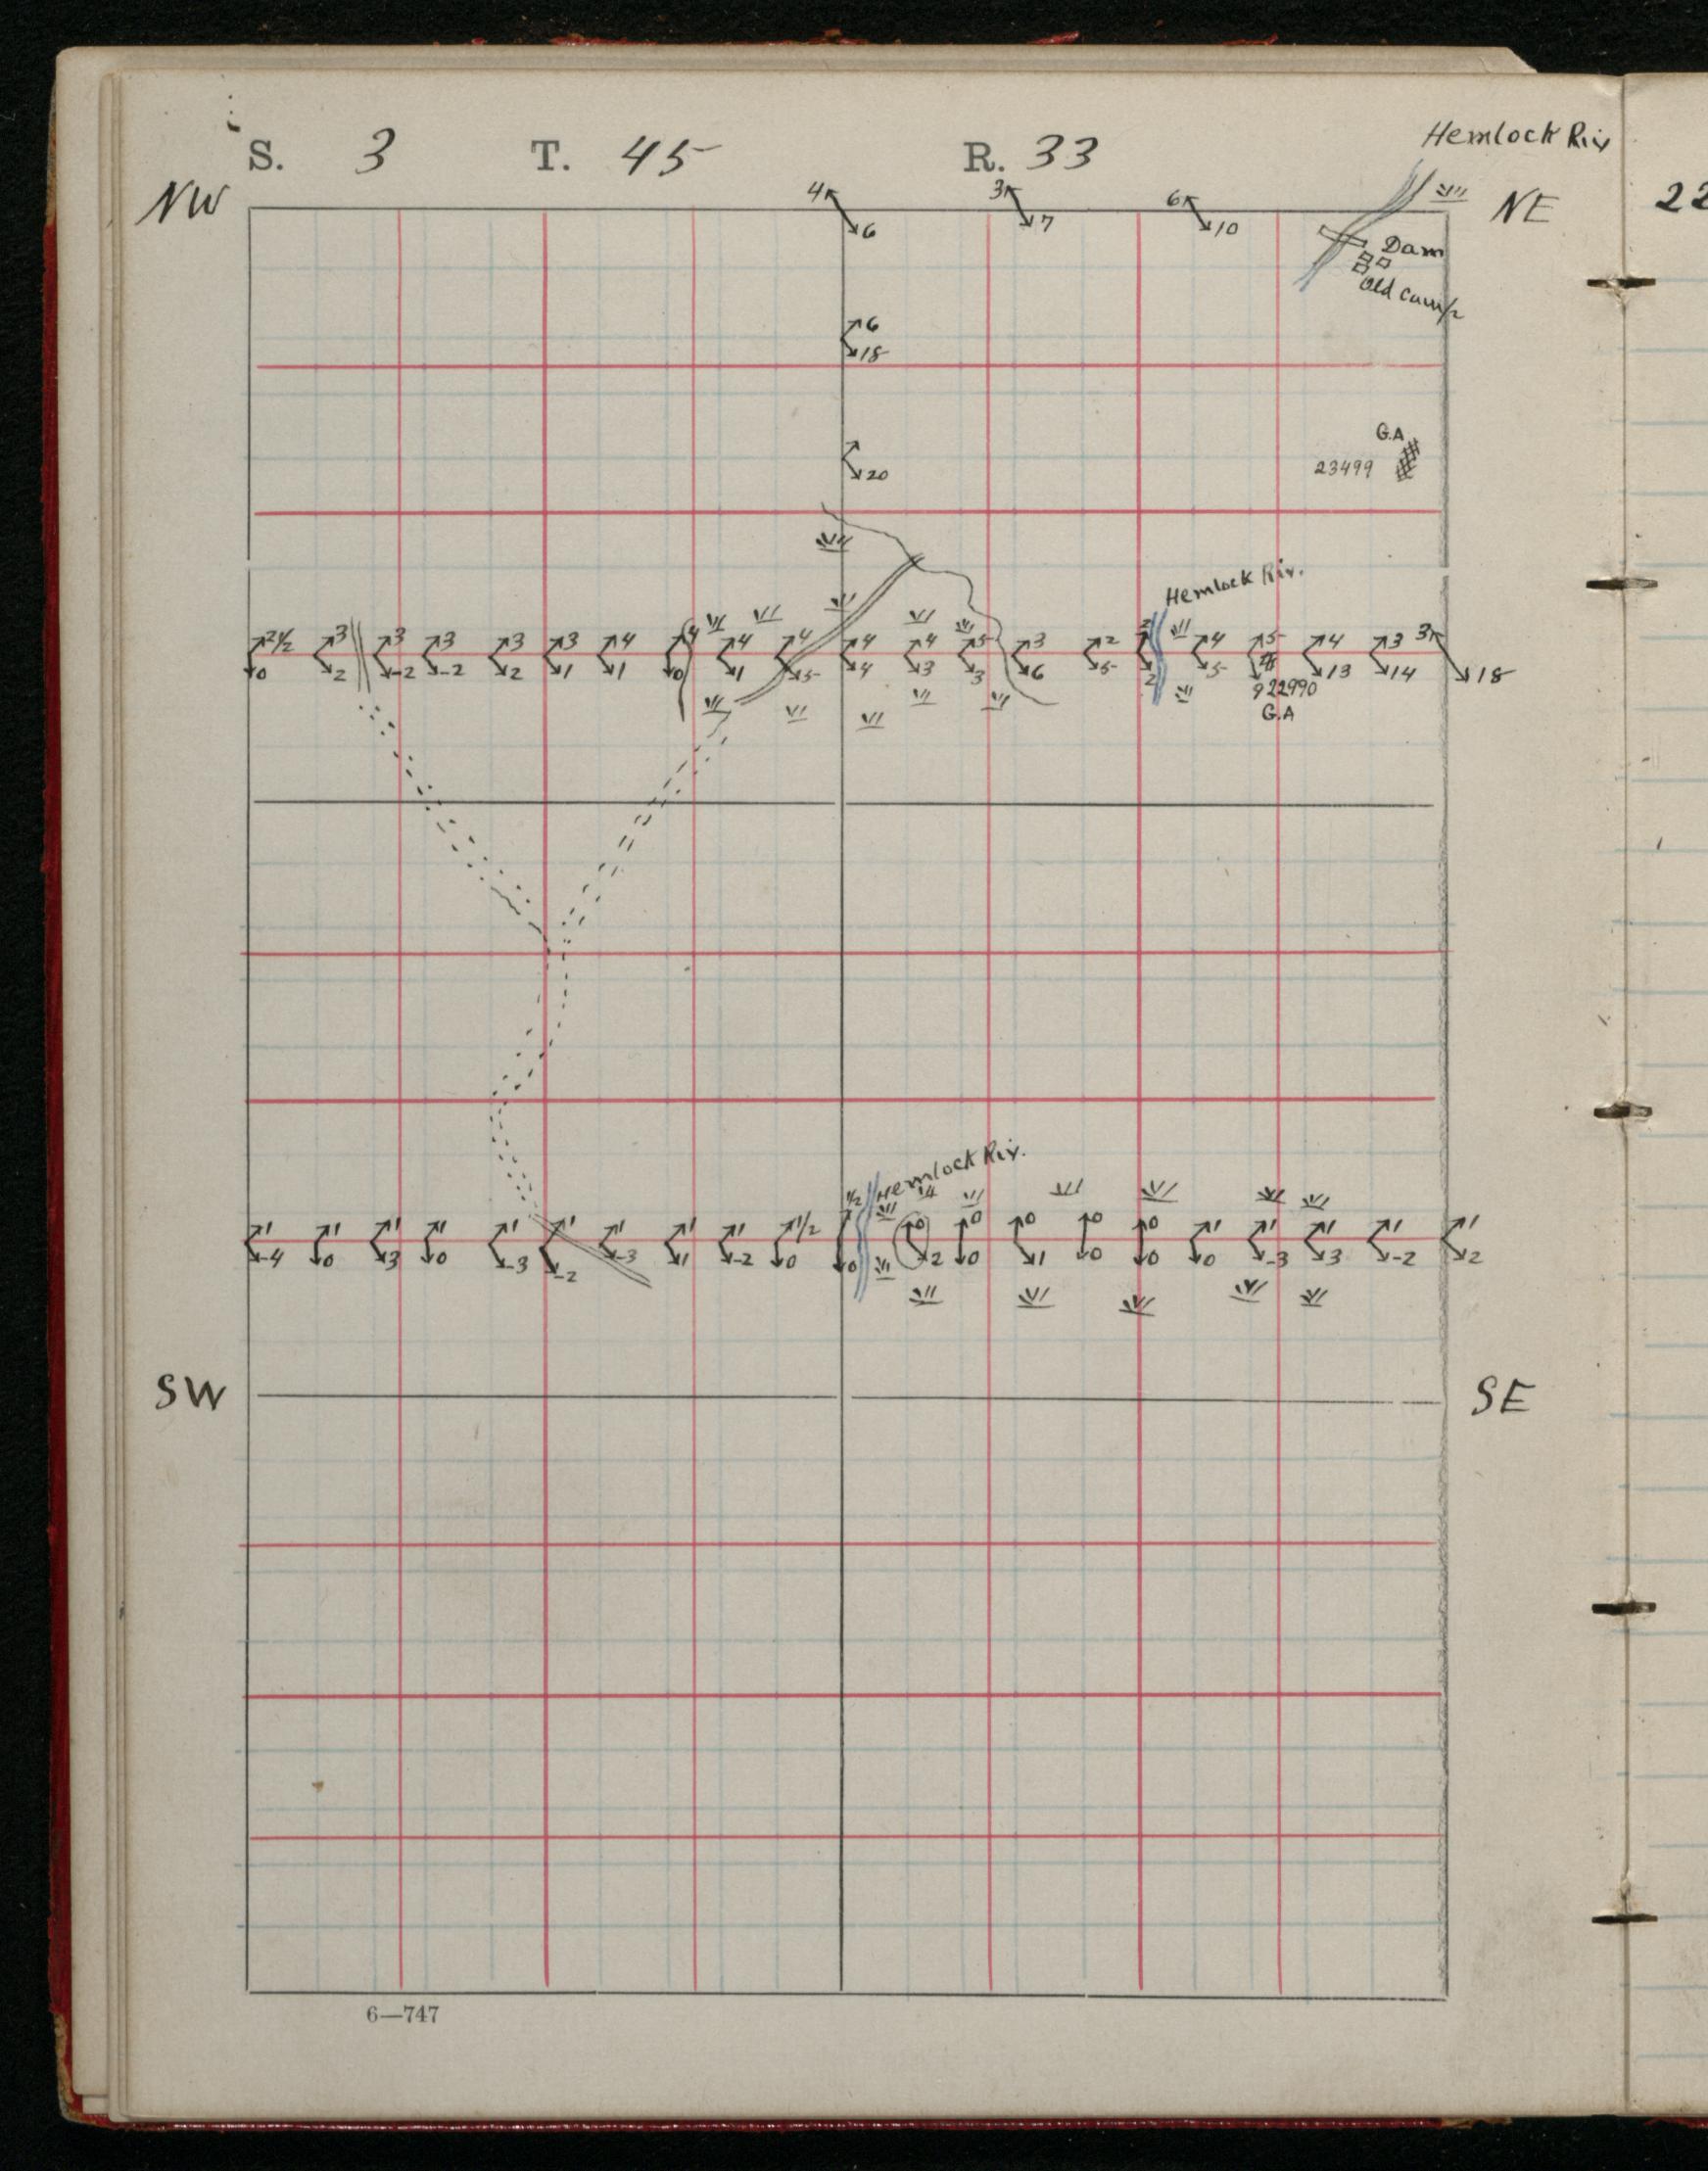 S. 3 T. 45 R. 33
Hemlock Riv
NW NE 22
4 3 6
6 7 10
Dam
Old Camp
6
18
G.A
23499
20
Hemlock Riv.
2½ 3 3 3 3 3 4 4 4 4 4 4 5 3 2 2 4 5 4 3 3
0 2 -2 -2 2 1 1 0 1 5 4 3 3 6 5 2 5 18 13 14 18
922990
G.A
Hemlock Riv.
1 1 1 1 1 1 1 1 1 1/2 1/2 0 0 0 0 0 1 1 1 1 1
-4 0 3 0 -3 -2 -3 1 -2 0 0 2 0 1 0 0 0 -3 3 -2 2
SW SE
6—747